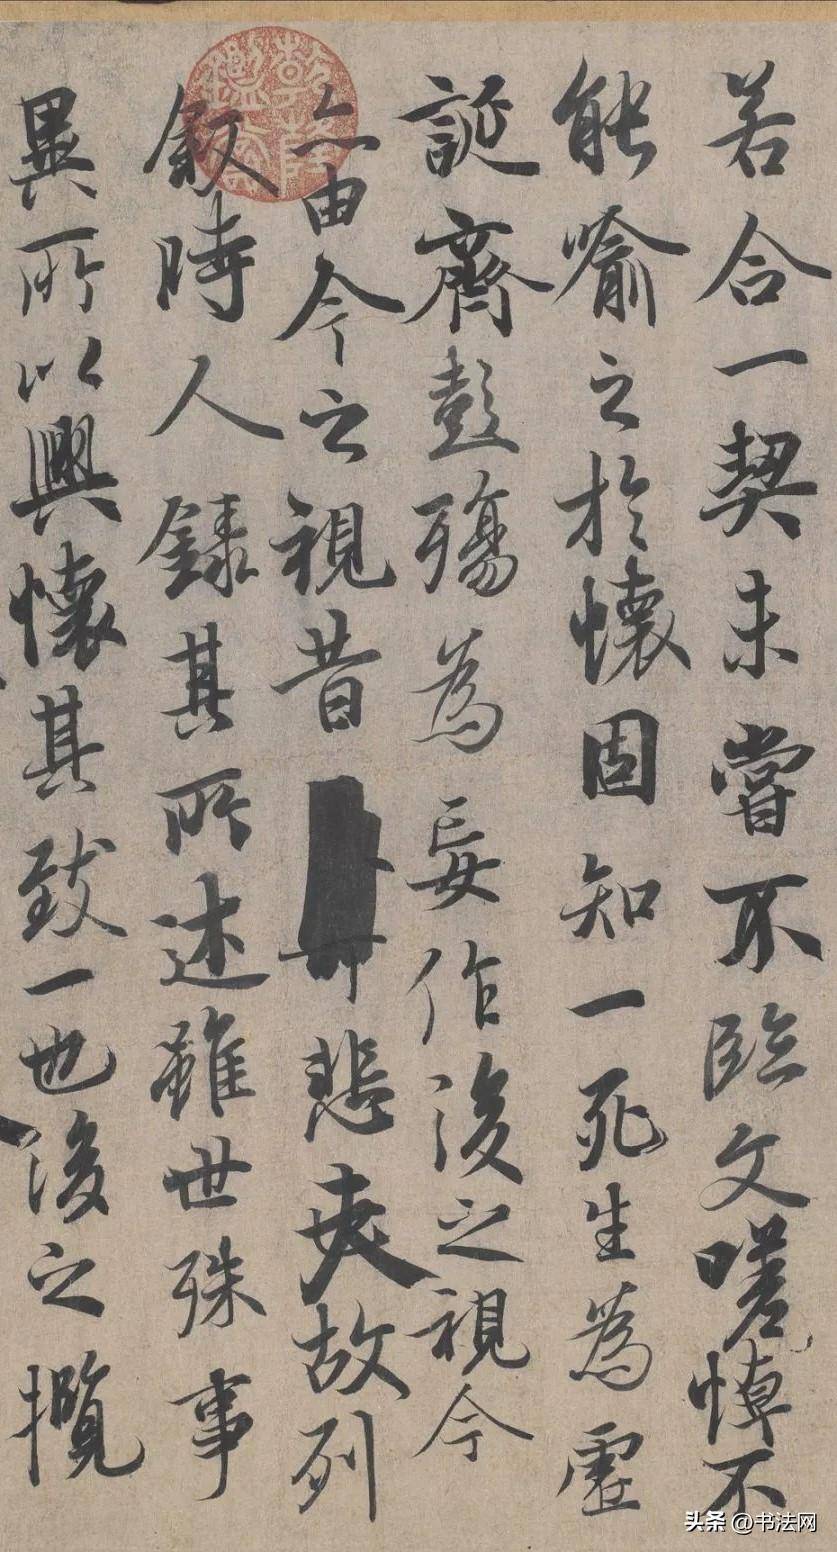 若合一契未嘗不臨文嗟悼不
能喻之於懷固知一死生為虛
誕齊彭殤為妄作後之視今
亦由今之視昔悲夫故列
叙時人錄其所述雖世殊事
異所以興懷其致一也後之攬
乾隆鑒賞
头条 @书法网